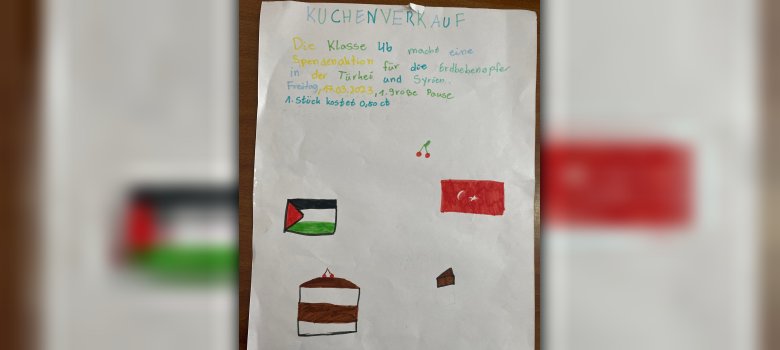 KUCHENVERKAUF
Die Klasse 4b macht eine
Spendenaktion für die Erdbebenopfer
in der Türkei und Syrien.
Freitag, 17.03.2023, 1. große Pause
1. Stück kostet 0,50 ct